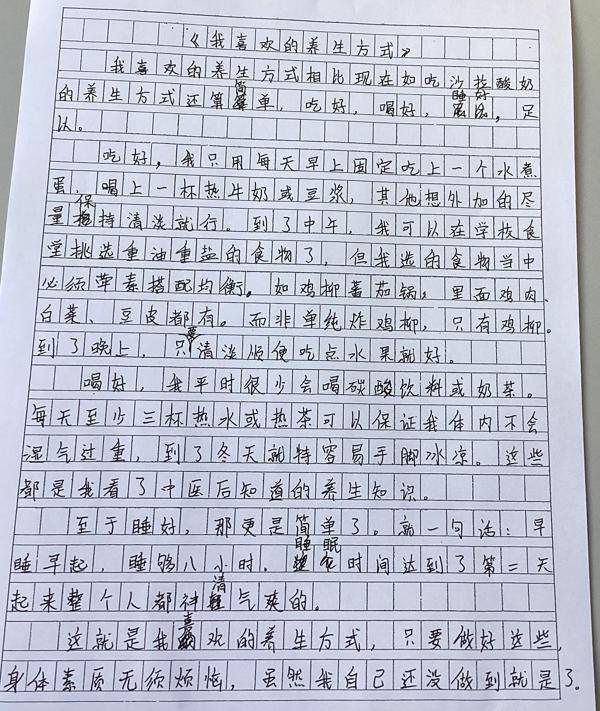 《我喜欢的养生方式》
我喜欢的养生方式相比现在如吃沙拉酸奶
的养生方式还算简单，吃好，喝好，睡好，足
以。
吃好，我只用每天早上固定吃上一个水煮
蛋，喝上一杯热牛奶或豆浆，其他想外加的尽
量保持清淡就行。到了中午，我可以在学校食
堂挑选重油重盐的食物了，但我选的食物当中
必须荤素搭配均衡。如鸡柳蕃茄锅，里面鸡肉、
白菜、豆皮都有。而非单纯炸鸡柳，只有鸡柳。
到了晚上，只要清淡顺便吃点水果就好。
喝好，我平时很少会喝碳酸饮料或奶茶。
每天至少三杯热水或热茶可以保证我体内不会
湿气过重，到了冬天就特容易手脚冰凉。这些
都是我看了中医后知道的养生知识。
至于睡好，那更是简单了。就一句话：早
睡早起，睡够八小时。睡眠时间达到了第二天
起来整个人都神清气爽的。
这就是我喜欢的养生方式，只要做好这些，
身体素质无须烦恼，虽然我自己还没做到就是了。